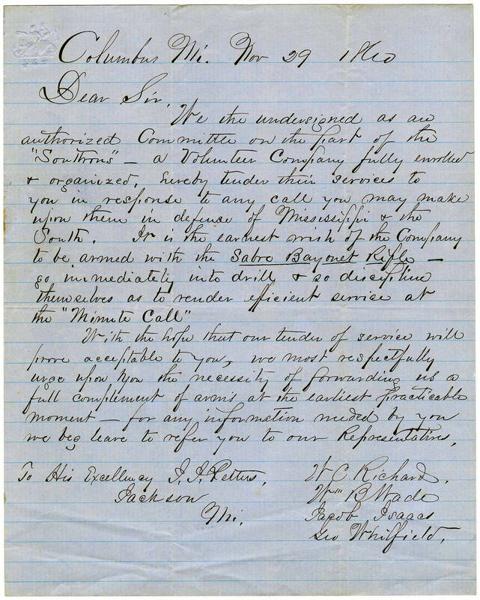 Columbus Mi. Nov 29 1860
Dear Sir,
We the undersigned as an
authorized Committee on the part of the
"Southrons" – a Volunteer Company fully enrolled
& organized, hereby tender their services to
you in response to any call you may make
upon them in defense of Mississippi & the
South. It is the earnest wish of the Company
to be armed with the Sabre Bayonet Rifle –
go immediately into drill & so discipline
themselves as to render efficient service at
the "Minute Call"
With the hope that our tender of service will
prove acceptable to you, we most respectfully
urge upon you the necessity of forwarding us a
full complement of arms at the earliest practicable
moment – for any information needed by you
we beg leave to refer you to our Representatives.
To His Excellency J. J. Pettus, W. C. Richard.
Jackson Wm B Wade
Mi. Jacob Isaacs
Geo Whitfield.